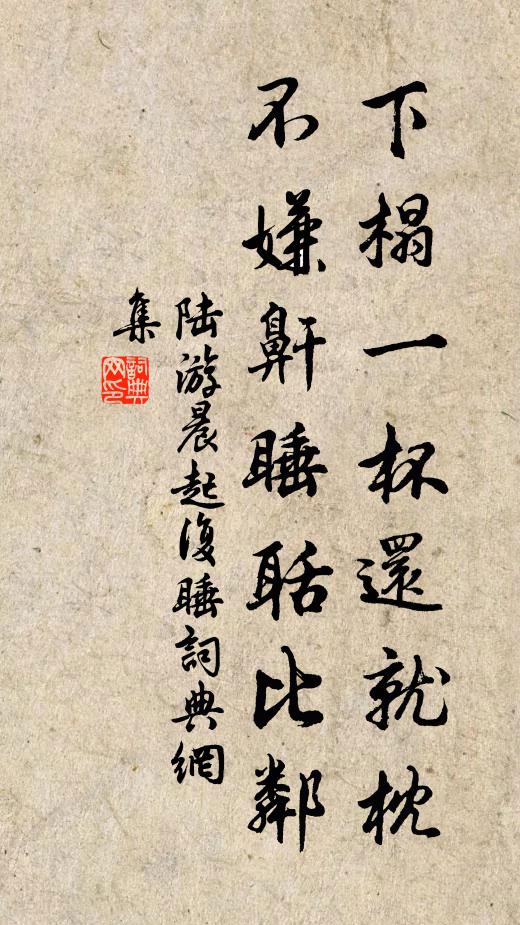 下榻一杯還就枕
不嫌鼾睡聒比鄰
陸游晨起復睡詞典網
集
詞典
網印